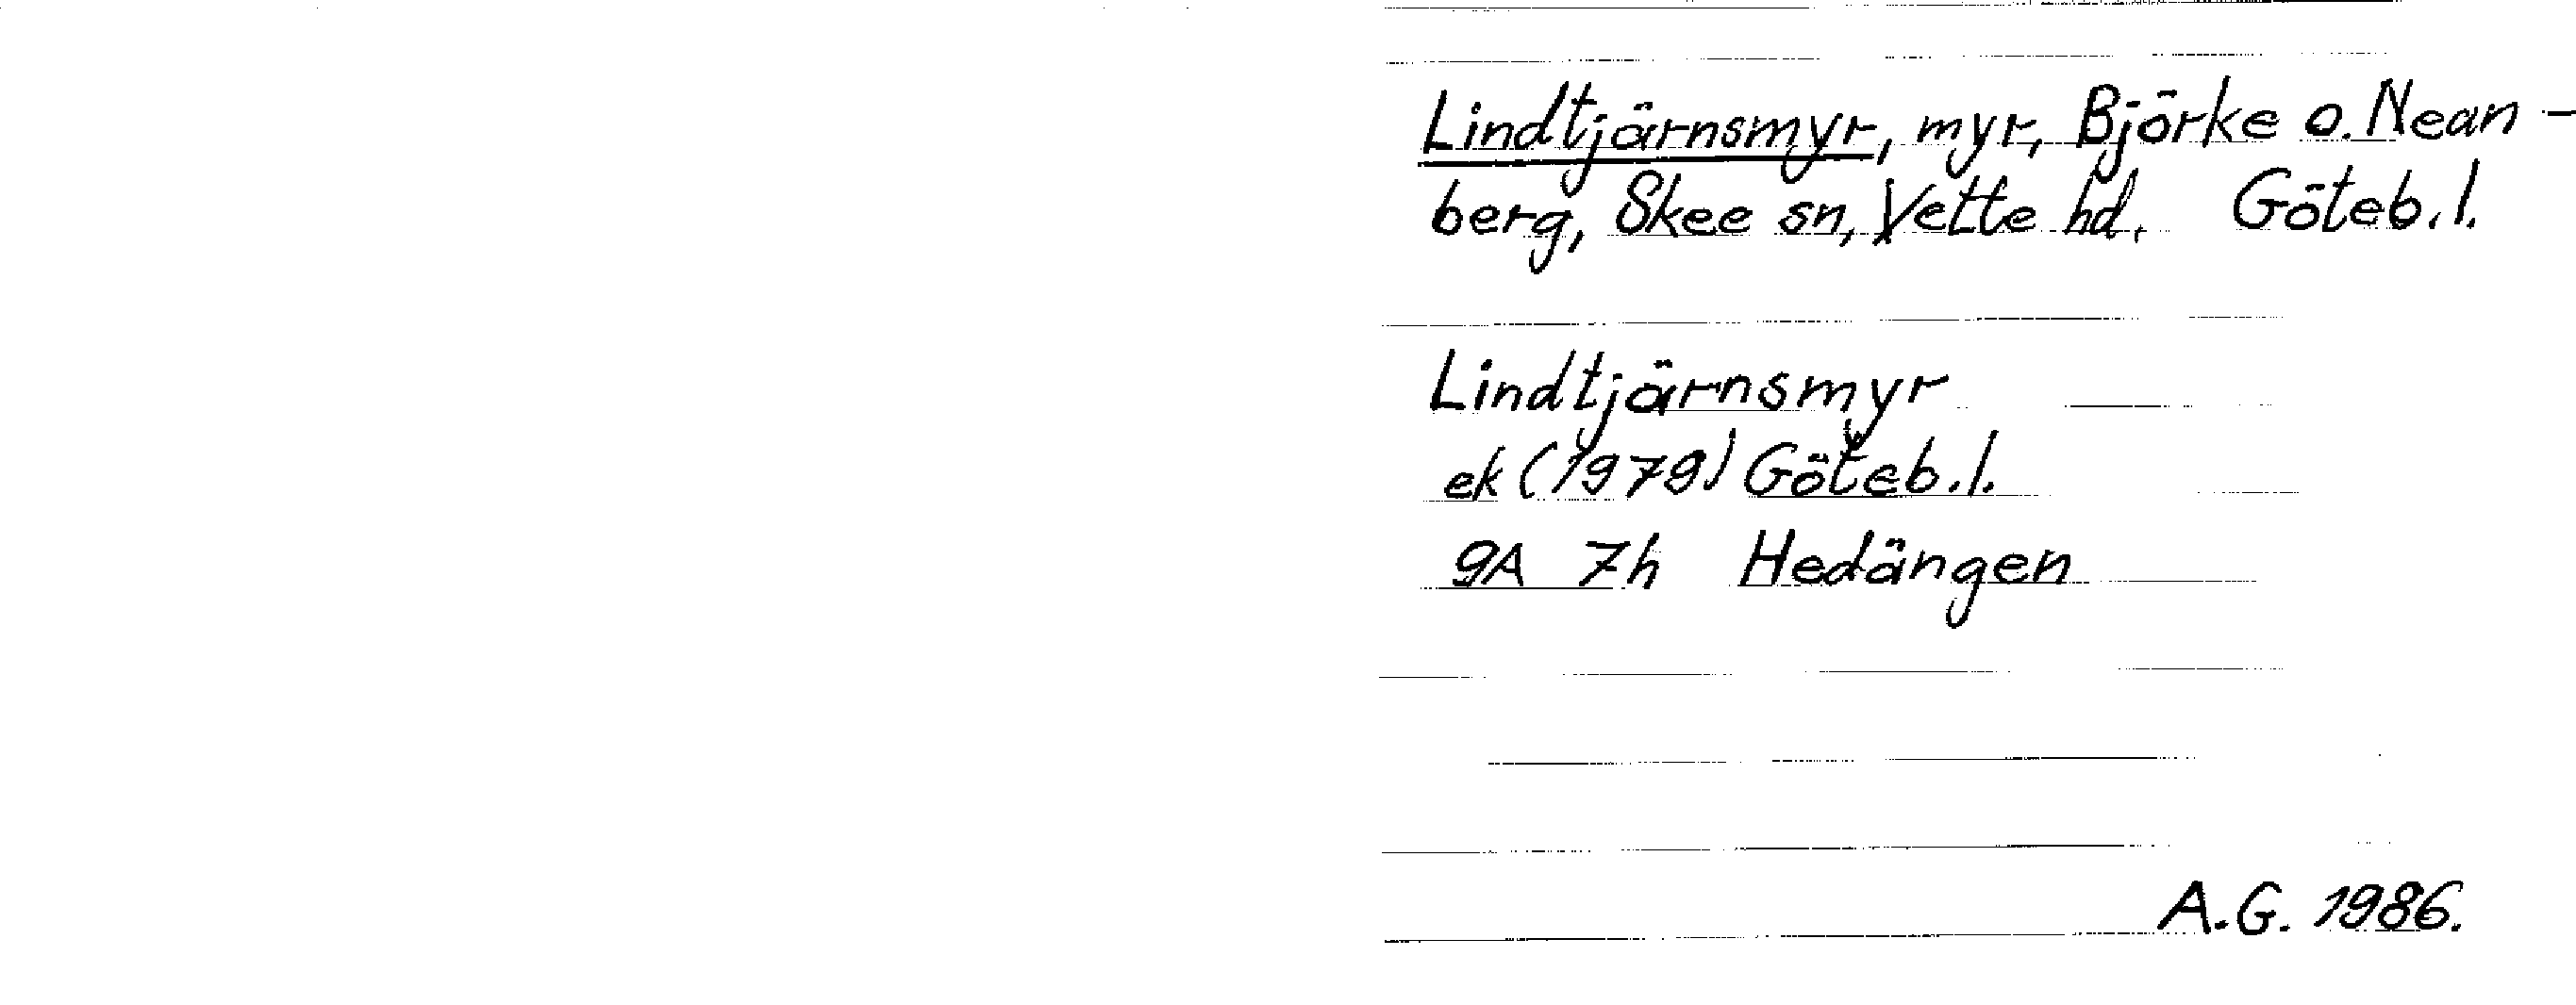 Lindtjärnsmyr, myr, Björke o. Nean-
berg, Skee sn, Vette hd. Göteb.l.
Lindtjärnsmyr
ek (1979) Göteb.l.
9A 7h Hedängen
A.G. 1986.